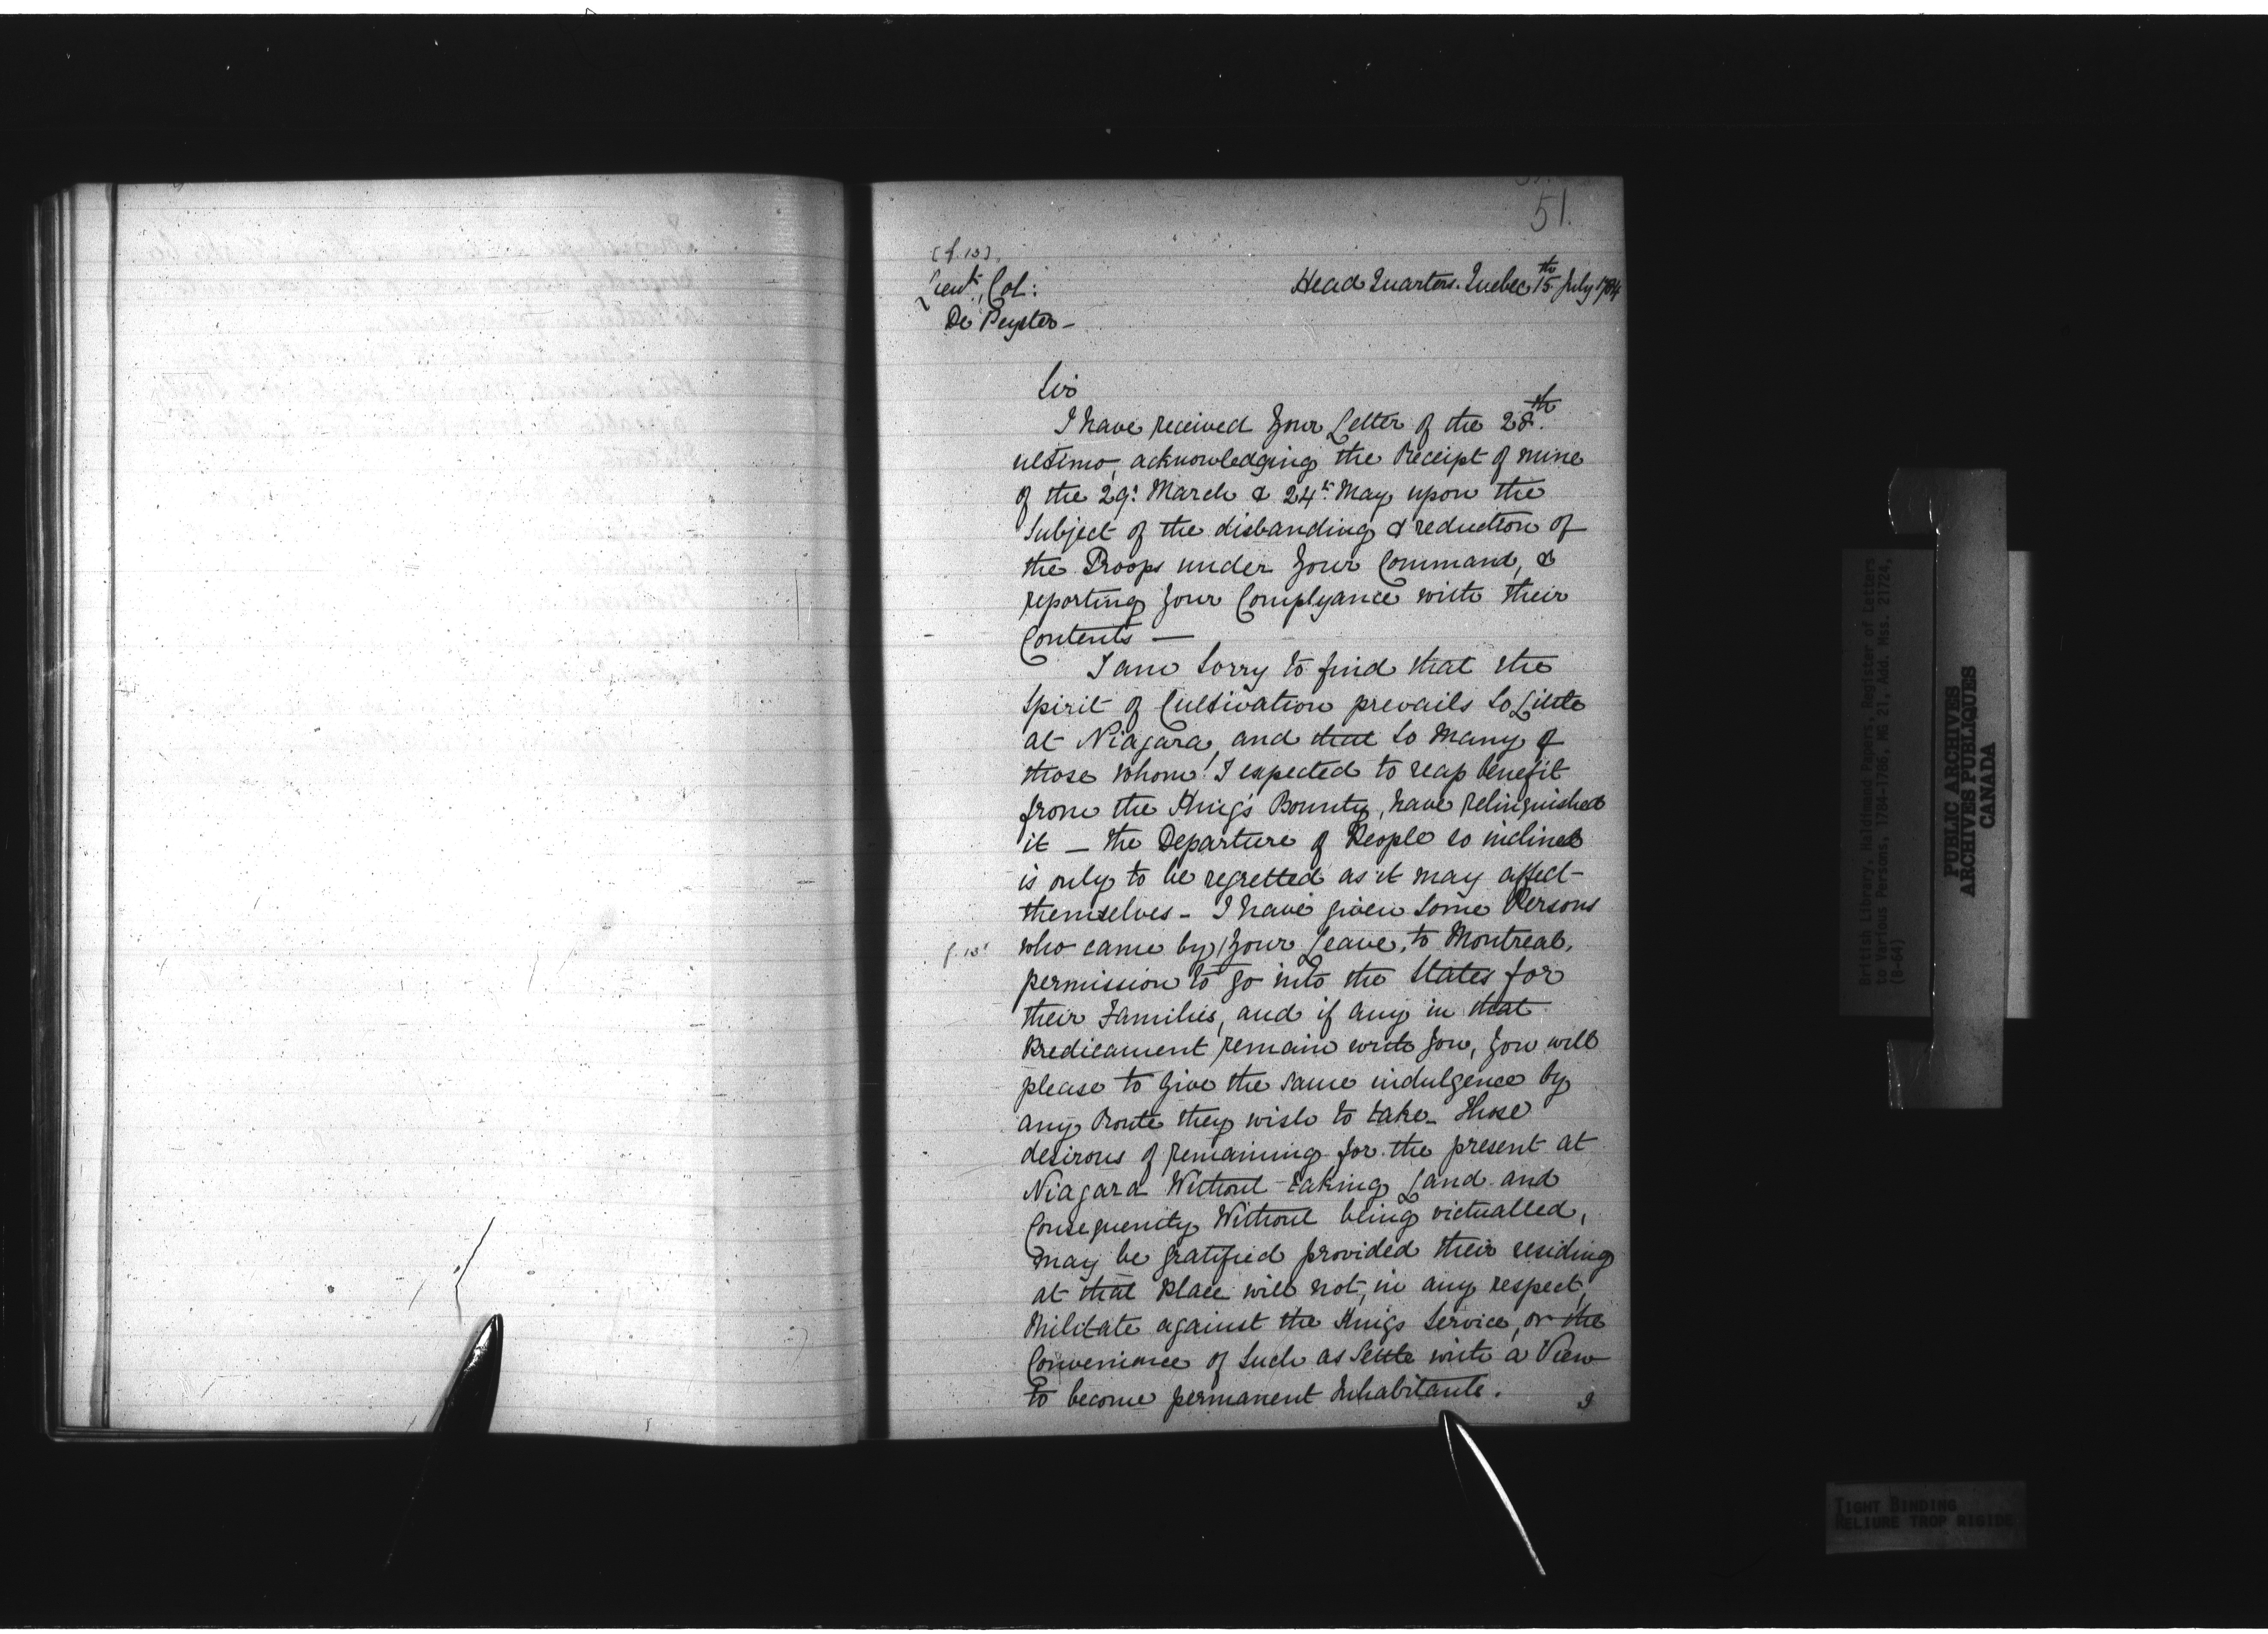 51.
(f.13).
Lieut. Col:
De Peyster -
Head Quarters. Quebec 15th July 1784
Sir
I have received your Letter of the 28th.
ultimo, acknowledging the Receipt of mine
of the 29: March & 24th May upon the
Subject of the disbanding & reduction of
the Troops under your Command, &
reporting your Complyance with their
Contents —
I am Sorry to find that the
Spirit of Cultivation prevails So Little
at Niagara, and that So Many of
those whom I expected to reap benefit
from the King's Bounty, have relinquished
it — the Departure of People so inclined
is only to be regretted as it may affect
themselves - I have given Some Persons
f.13'
who came by your Leave, to Montreal,
permission to go into the States for
their Families, and if any in that
Predicament remain with you, you will
please to give the same indulgence by
any Route they wish to take - Those
desirous of remaining for the present at
Niagara Without taking Land and
Consequently Without being victualled,
may be gratified provided their residing
at that Place will not, in any respect,
Militate against the Kings Service, or the
Convenience of Such as Settle with a View
to become permanent Inhabitants.
I
British Library, Haldimand Papers, Register of Letters
to Various Persons, 1784-1786, MG 21, Add. Mss. 21724,
(B-64)
PUBLIC ARCHIVES
ARCHIVES PUBLIQUES
CANADA
TIGHT BINDING
RELIURE TROP RIGIDE